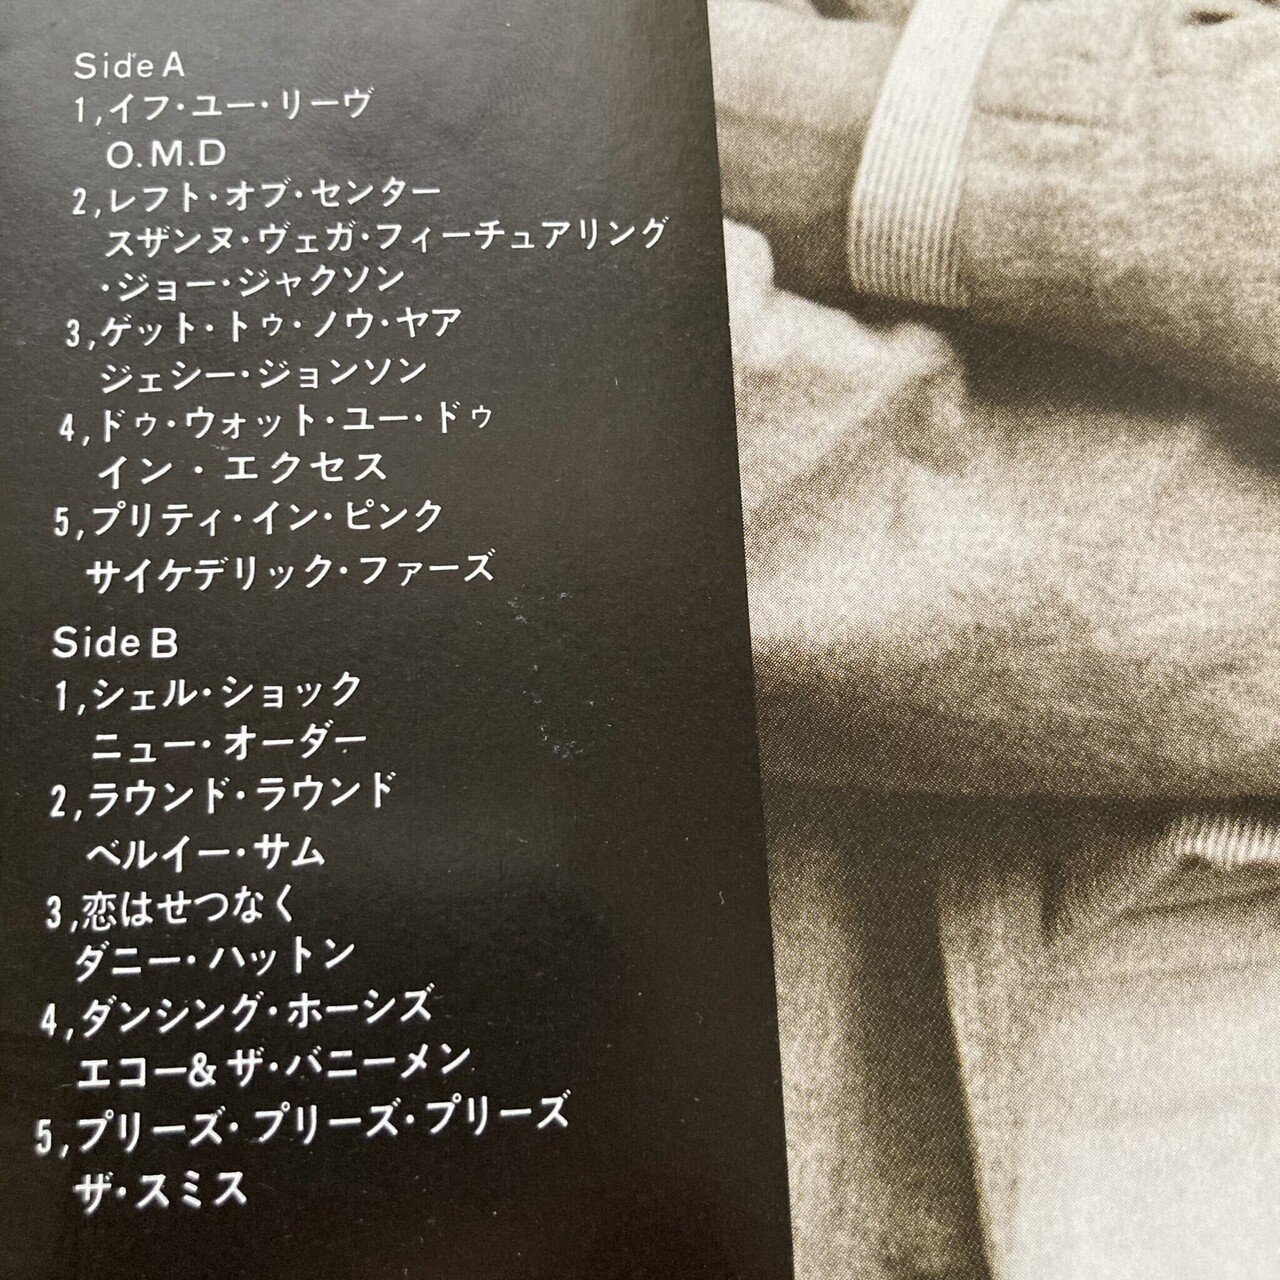 Side A
1,イフ・ユー・リーヴ
O.M.D
2,レフト・オブ・センター
スザンヌ・ヴェガ・フィーチュアリング
・ジョー・ジャクソン
3,ゲット・トゥ・ノウ・ヤア
ジェシー・ジョンソン
4,ドゥ・ウォット・ユー・ドゥ
イン・エクセス
5,プリティ・イン・ピンク
サイケデリック・ファーズ
Side B
1,シェル・ショック
ニュー・オーダー
2,ラウンド・ラウンド
ベルイー・サム
3,恋はせつなく
ダニー・ハットン
4,ダンシング・ホーシズ
エコー&ザ・バニーメン
5,プリーズ・プリーズ・プリーズ
ザ・スミス